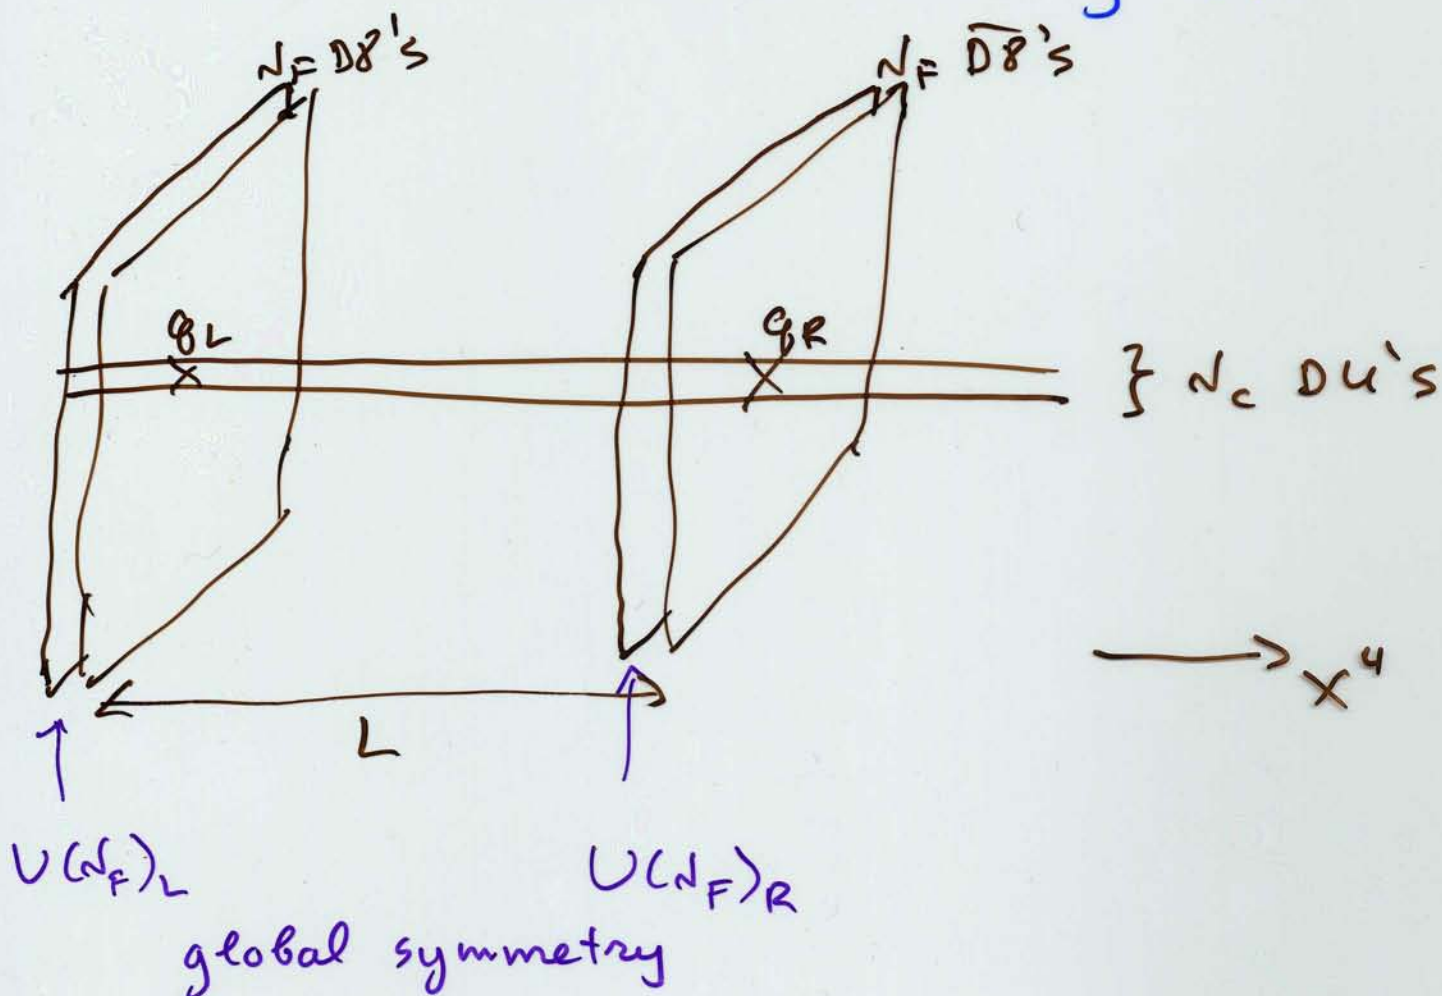 N_F D8's
N_F \overline{D8}'s
q_L
q_R
} N_c D4's
x^4
L
U(N_F)_L
U(N_F)_R
global symmetry